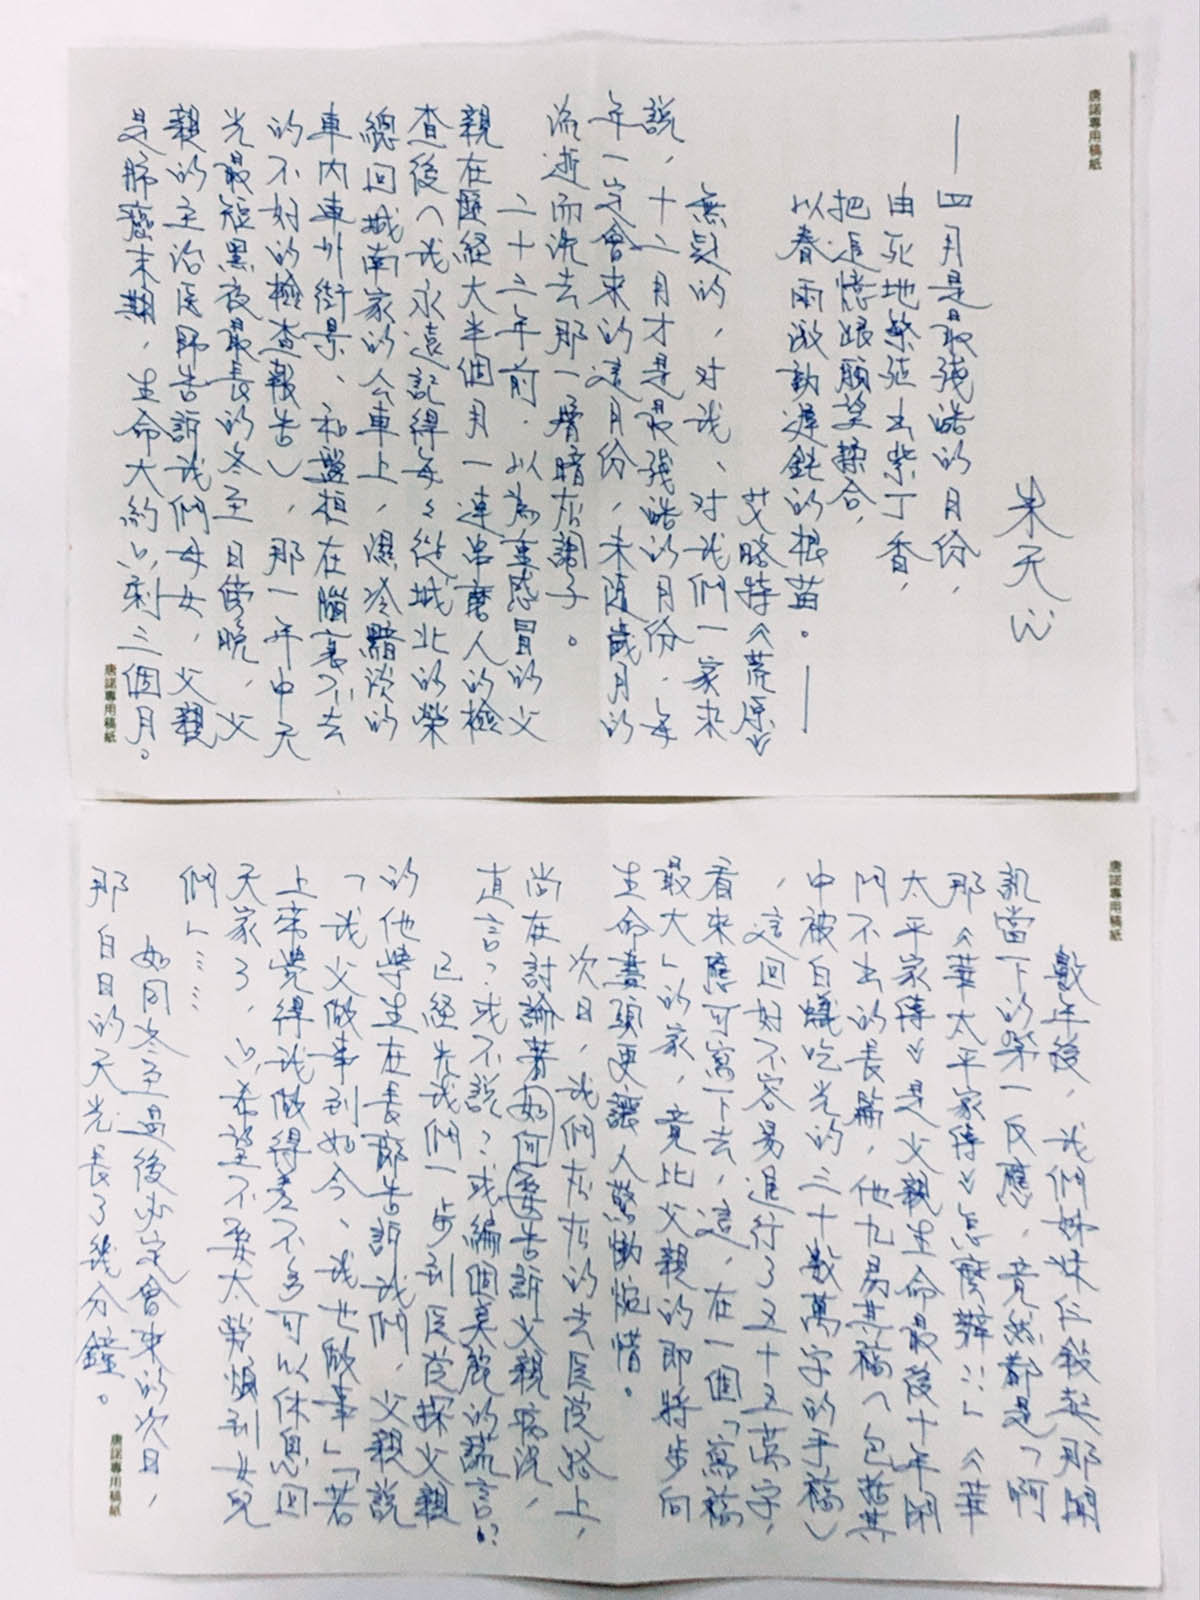 唐諾專用稿紙
朱天心
—四月是最殘酷的月份，
由死地繁殖出紫丁香，
把追憶跟願望揉合，
以春雨激動遲鈍的根苗。—
艾略特《荒原》
無疑的，对我、对我們一家來
說，十二月才是最殘酷的月份，每
年一定會來的這月份，未隨歲月的
流逝而洗去那一脊暗灰調子。
二十三年前，以為重感冒的父
親在歷經大半個月一連串磨人的檢
查後（我永遠記得每々從城北的榮
總回城南家的公車上，濕冷黯淡的
車內車外街景、和盤桓在腦裏不去
的不好的檢查報告），那一年中天
光最短黑夜最長的冬至日傍晚，父
親的主治医師告訴我們母女，父親
是肺癌末期，生命大約只剩三個月。
唐諾專用稿紙
唐諾專用稿紙
數年後，我們姊妹仨敍起那聞
訊當下的第一反應，竟然都是「啊
那《華太平家傳》怎麼辦！」《華
太平家傳》是父親生命最後十年閉
門不出的長篇，他九易其稿（包括其
中被白蟻吃光的三十数萬字的手稿）
，這回好不容易進行了五十五萬字，
看來應可寫下去，這，在一個「寫稿
最大」的家，竟比父親的即將步向
生命盡頭更讓人驚慟惋惜。
次日，我們在在的去医院路上，
尚在討論著如何要告訴父親病況，
直言？或不說？或編個美麗的謊言？
已經先我們一步到医院探父親
的他學生在長廊告訴我們，父親說
「我父做事到如今、我也做事」「若
上帝覺得我做得差不多可以休息回
天家了，只希望不要太勞煩到女兒
們」……
如同冬至過後必定會來的次日，
那白日的天光長了幾分鐘。
唐諾專用稿紙